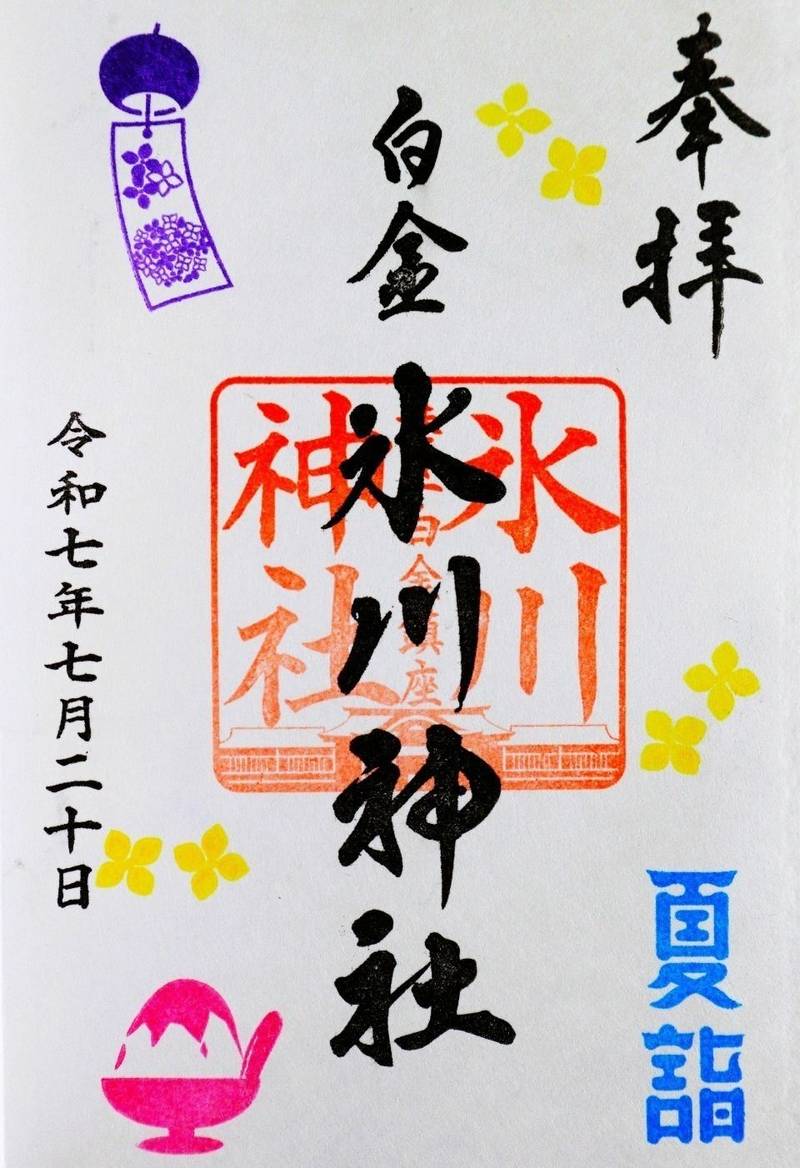 奉拝
白金
氷川神社
氷川
神社
白金鎮座
令和七年七月二十日
夏詣